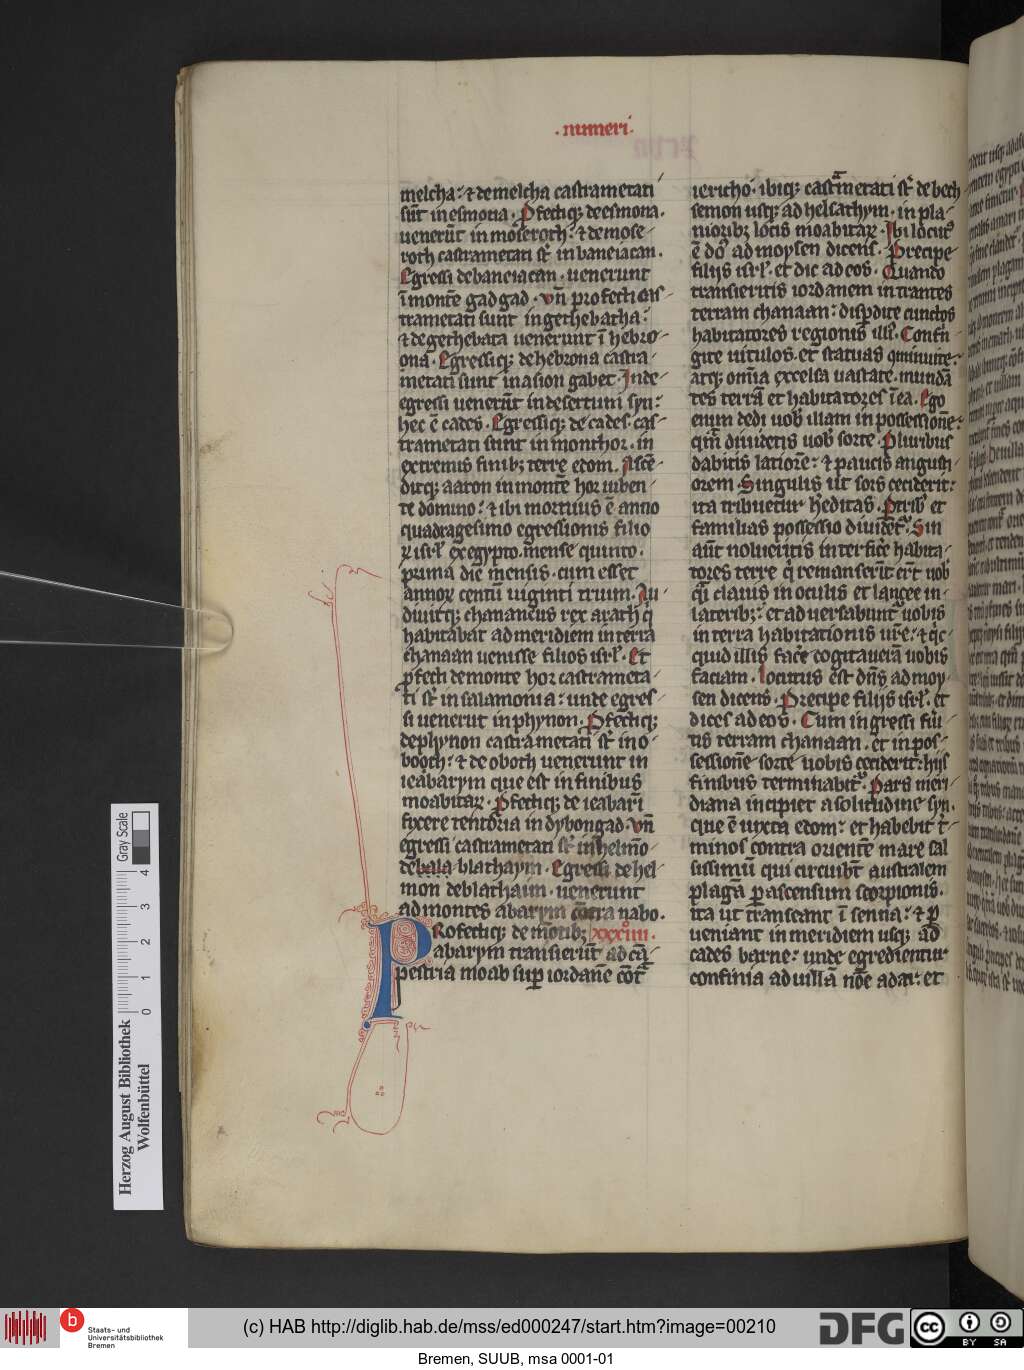 .numeri.
melcha: ⁊ de melcha castrametati
sūt in esmona. Pfectiq; de esmona.
uenerūt in moseroth: ⁊ de mose-
roth castrametati sī in baneiacan.
Egressi de baneiacan. uenerunt
ī montē gadgad. Vn̄ profecti cas-
trametati sunt in gethebatha:
⁊ de gethebata uenerunt ī hebro-
ona. Egressiq; de hebrona castra-
metati sunt in asion gabet. Inde
egressi uenerūt in desertum syn:
hec ē cades. Egressiq; de cades. cas-
trametati sunt in mont hor. in
extremis finib; terre edom. Ascē-
ditq; aaron in montē hor iuben-
te domino: ⁊ ibi mortuus ē anno
quadragesimo egressionis filio
ꝝ isrl̄ ex egypto. mense quinto.
prima die mensis. cum esset
annoꝝ centū uiginti trium. Au-
diuitq; chananeus rex arath q̄
habitabat ad meridiem in terra
chanaan uenisse filios isrl̄. Et
pfecti de monte hor castrameta-
ti sī in salamona: unde egres-
si uenerūt in phynon. Pfectiq;
de phynon castrametati sī in o-
booth: ⁊ de oboth uenerunt in
ieabarym que est in finibus
moabitaꝝ. Pfectiq; de ieabarī
fixere tentoria in dybongad. Vn̄
egressi castrametati sī in helmō
de bala blathaym. Egressi de hel
mon deblathaim. uenerunt
ad montes abarym cōtra nabo.
PRofectiq; de mōtib; xxxiiii.
abarym transierūt ad cā-
pestria moab sup iordanē cōt
iericho. ibiq; castmetati sī de beth
semon usq; ad belsathym. in pla-
nioribꝫ locis moabitaꝝ. Ibi locut9
ē dōs ad moysen dicens. Precipe
filijs isrl̄. et dic ad eos. Quando
transieritis iordanem intrantes
terram chanaan: dispdite cunctos
habitatores regionis illi9. Confrī
gite titulos. et statuas 9minuite.
atq; omīa excelsa uastate. mundā
tes terrā et habitatores ī ea. Ego
enim dedi uob illam in possessionē:
quā diuidetis uob sorte. Pluribus
dabitis latiorē: ⁊ paucis angusti-
orem. Singulis ut sors ceciderit:
ita tribuetur hereditas. Ptrib9 et
familias possessio diuidet. Sin
aūt nolueritis interficē habita-
tores terre q̄ remanserīt erīt uob
q̄i clauis in oculis et lancee in-
laterib;: et aduersabunt uobis
in terra habitationis urē: ⁊ qc-
quid illis facē cogitauerā uobis
faciam. Locutus est dn̄s ad moy-
sen dicens. Precipe filijs isrl̄. et
dices ad eos. Cum ingressi fūi
tis terram chanaan. et in pos-
sessionē sorte uobis ceciderit: hijs
finibus terminabit. Pars meri-
diana incipiet a solitudine syn.
que ē iuxta edom: et habebit t-
minos contra orientē mare sal
sissimū qui circuibt australem
plaga p ascensum scorpionis.
ita ut transeant ī senna: ⁊ p
ueniant in meridiem usq; ad
cades barne: unde egredientur
confinia ad uillā nōe adar: et
Gray Scale
0 1 2 3 4
Herzog August Bibliothek
Wolfenbüttel
b
Staats- und
Universitätsbibliothek
Bremen
(c) HAB http://diglib.hab.de/mss/ed000247/start.htm?image=00210
DFG
cc BY SA
Bremen, SUUB, msa 0001-01